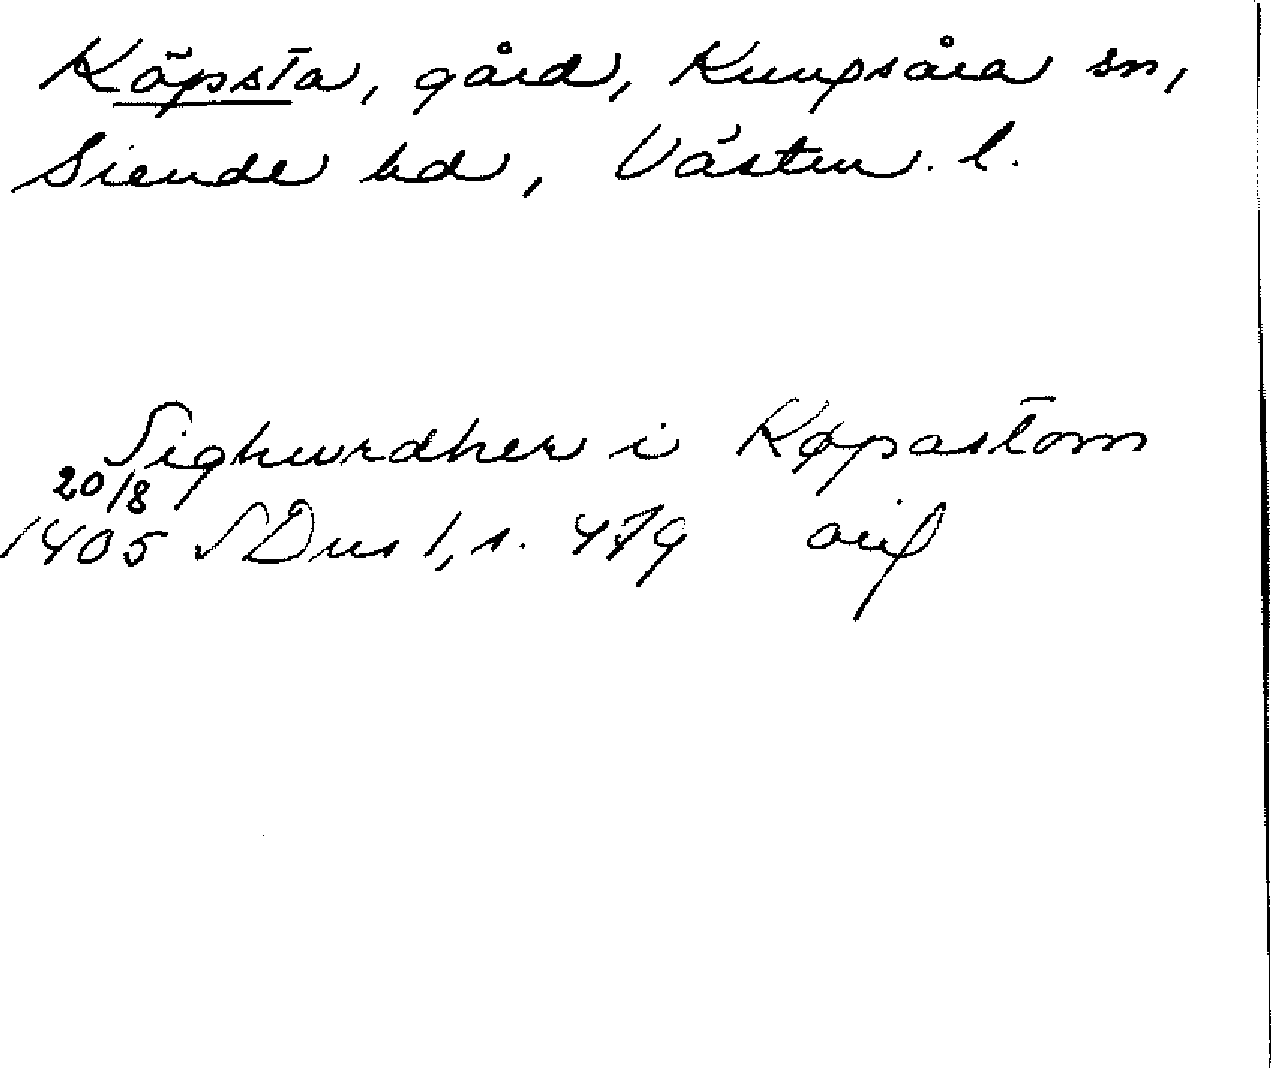 Köpsta, gård, Kungsåra sn,
Siende hd, Västm. l.
Sighurdher i Köpastom
20/8
1405 SDns 1, s. 479 orig